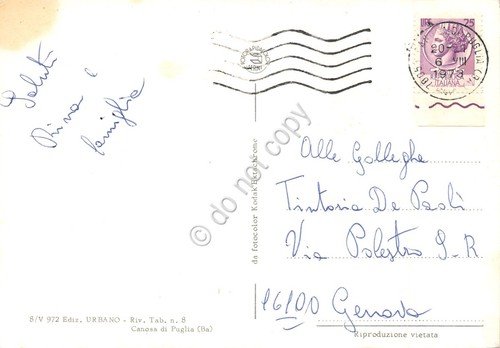 Saluti
Rina e
famiglia
LIRE 25
20-21
6 VIII
1973
ITALIANA
Alle Colleghe
Tintoria De Paoli
Via Polestro 9-R
16100 Genova
da fotocolor Kodak Ektachrome
do not copy
B/V 972 Ediz. URBANO - Riv. Tab. n. 8
Canosa di Puglia (Ba)
Riproduzione vietata